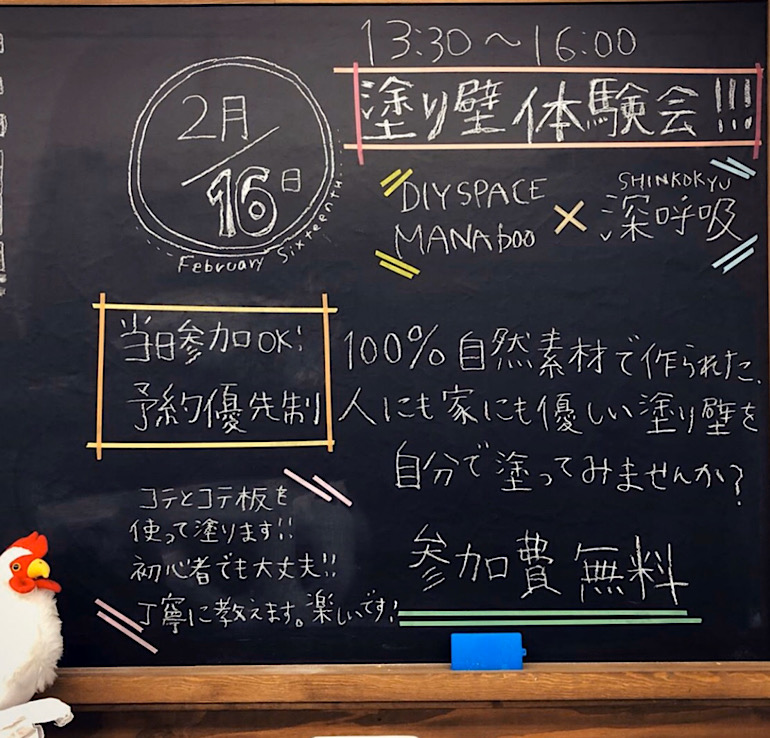 13:30～16:00
塗り壁体験会!!!
2月
16日
February Sixteenth
DIY SPACE
MANAboo
×
SHINKOKYU
深呼吸
当日参加OK!
予約優先制
100%自然素材で作られた、
人にも家にも優しい塗り壁を
自分で塗ってみませんか?
コテとコテ板を
使って塗ります!!
初心者でも大丈夫!!
丁寧に教えます。楽しいです!
参加費無料